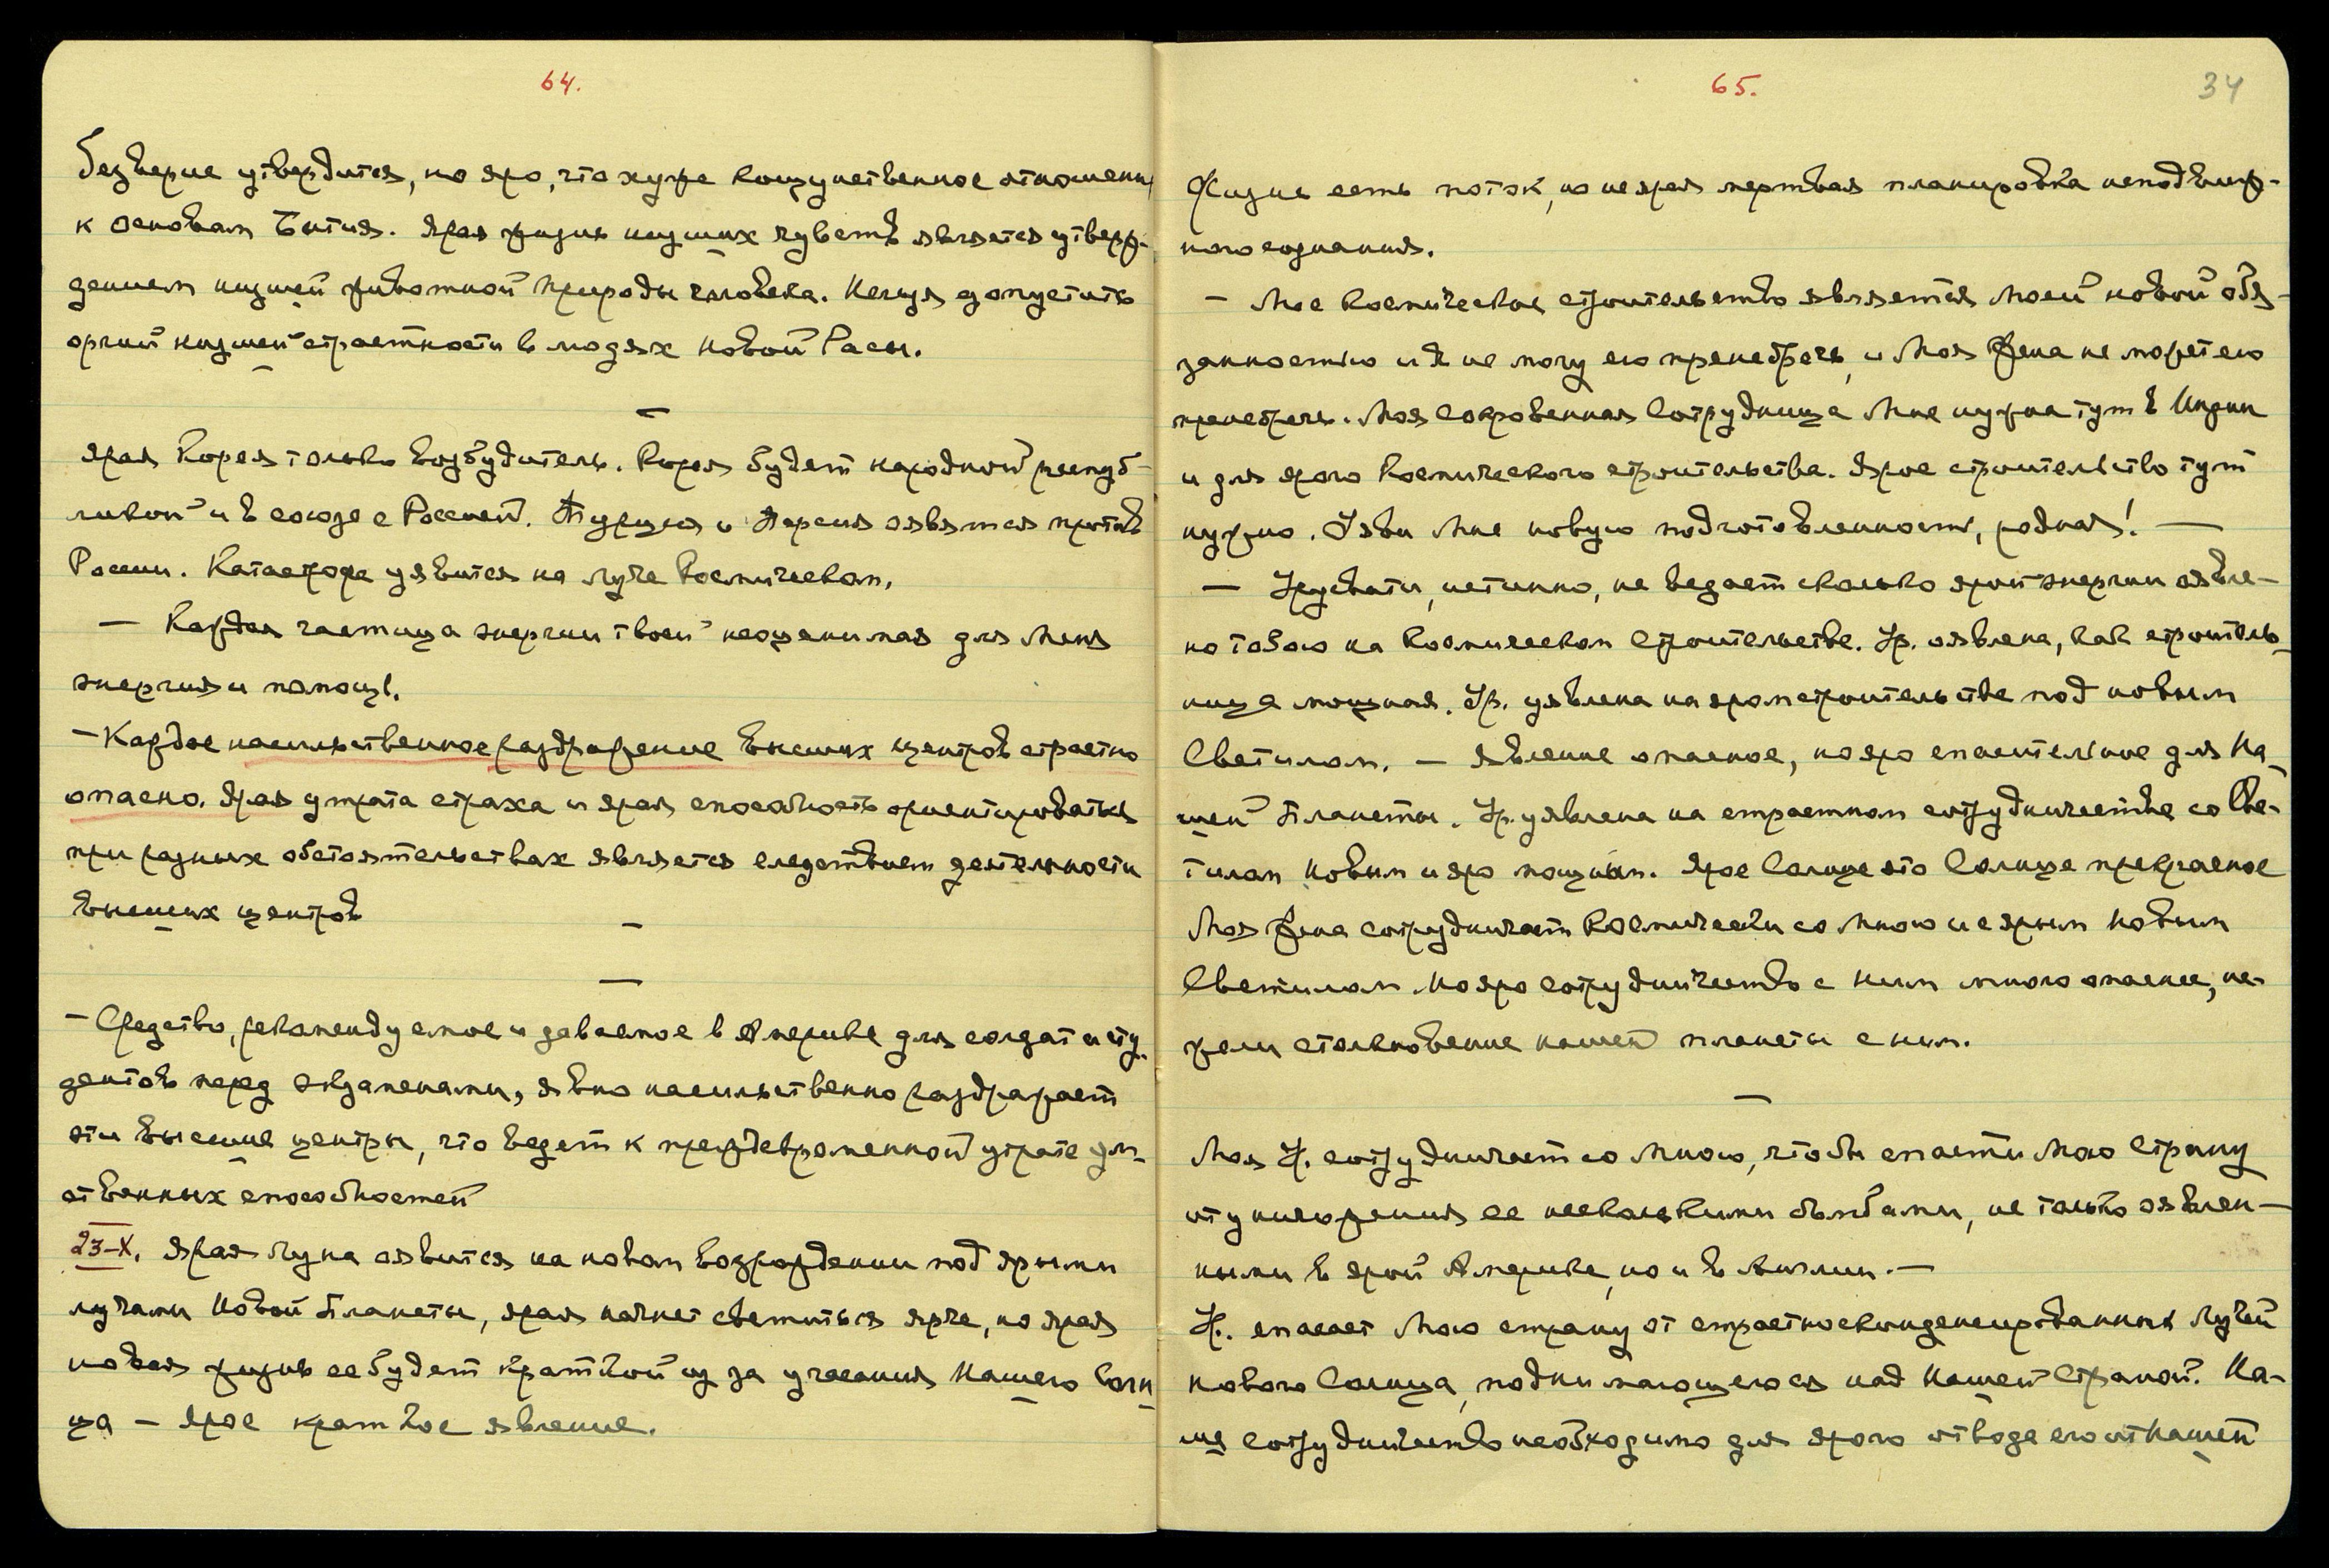 64.
Безверие утвердится, но яро, что хуже кощунственное отношение
к основам Бытия. Ярая жизнь низших чувств является утверж-
дением низшей животной природы человека. Нельзя допустить
оргий низшей страстности в людях новой Расы.
—
Ярая Корея только возбудитель. Корея будет народной респуб-
ликой и в союзе с Россией. Турция и Персия оявятся против
России. Катастрофа уявится на луче Космическом.
— Каждая частица энергии твоей неоценимая для Меня
энергия и помощь.
— Каждое насильственное раздражение высших центров страстно
опасно. Ярая утрата страха и ярая способность ориентироваться
при разных обстоятельствах является следствием деятельности
высших центров
—
—
— Средство, рекомендуемое и даваемое в Америке для солдат и сту-
дентов перед экзаменами, явно насильственно раздражает
эти высшие центры, что ведет к преждевременной утрате ум-
ственных способностей
23-X. Ярая Луна оявится на новом возрождении под ярыми
лучами Новой Планеты, ярая начнет светиться ярче, но ярая
новая жизнь ее будет краткой из за угасания Нашего Солн-
ца — ярое краткое явление.
65.
34
Жизнь есть поток, но не ярая мертвая планировка неподвиж-
ного сознания.
— Мое Космическое строительство является Моей новой обя-
занностью и Я не могу его пренебречь, и Моя Жена не может его
пренебречь. Моя Сокровенная Сотрудница Мне нужна тут в Индии
и для ярого Космического строительства. Ярое строительство тут
нужно. Уяви Мне новую подготовленность, родная! —
— Урусвати, истинно, не ведает сколько ярой энергии оявле-
но тобою на Космическом Строительстве. Ур. оявлена, как строитель-
ница мощная. Ур. уявлена на яром строительстве под новым
Светилом. — Явление опасное, но яро спасительное для На-
шей Планеты. Ур. уявлена на страстном сотрудничестве со Све-
тилом Новым и яро мощным. Ярое Солнце это Солнце прекрасное
Моя Жена сотрудничает Космически со Мною и с ярым Новым
Светилом. Но яро сотрудничество с Ним много опаснее, не-
жели столкновение нашей планеты с ним.
—
Моя Ур. сотрудничает со Мною, чтобы спасти Мою Страну
от уничтожения ее несколькими бомбами, не только оявлен-
ными в ярой Америке, но и в Англии. —
Ур. спасает Мою страну от страстно сконденсированных Лучей
нового Солнца, поднимающегося над Нашей Страной. На-
ше сотрудничество необходимо для ярого отвода его от Нашей